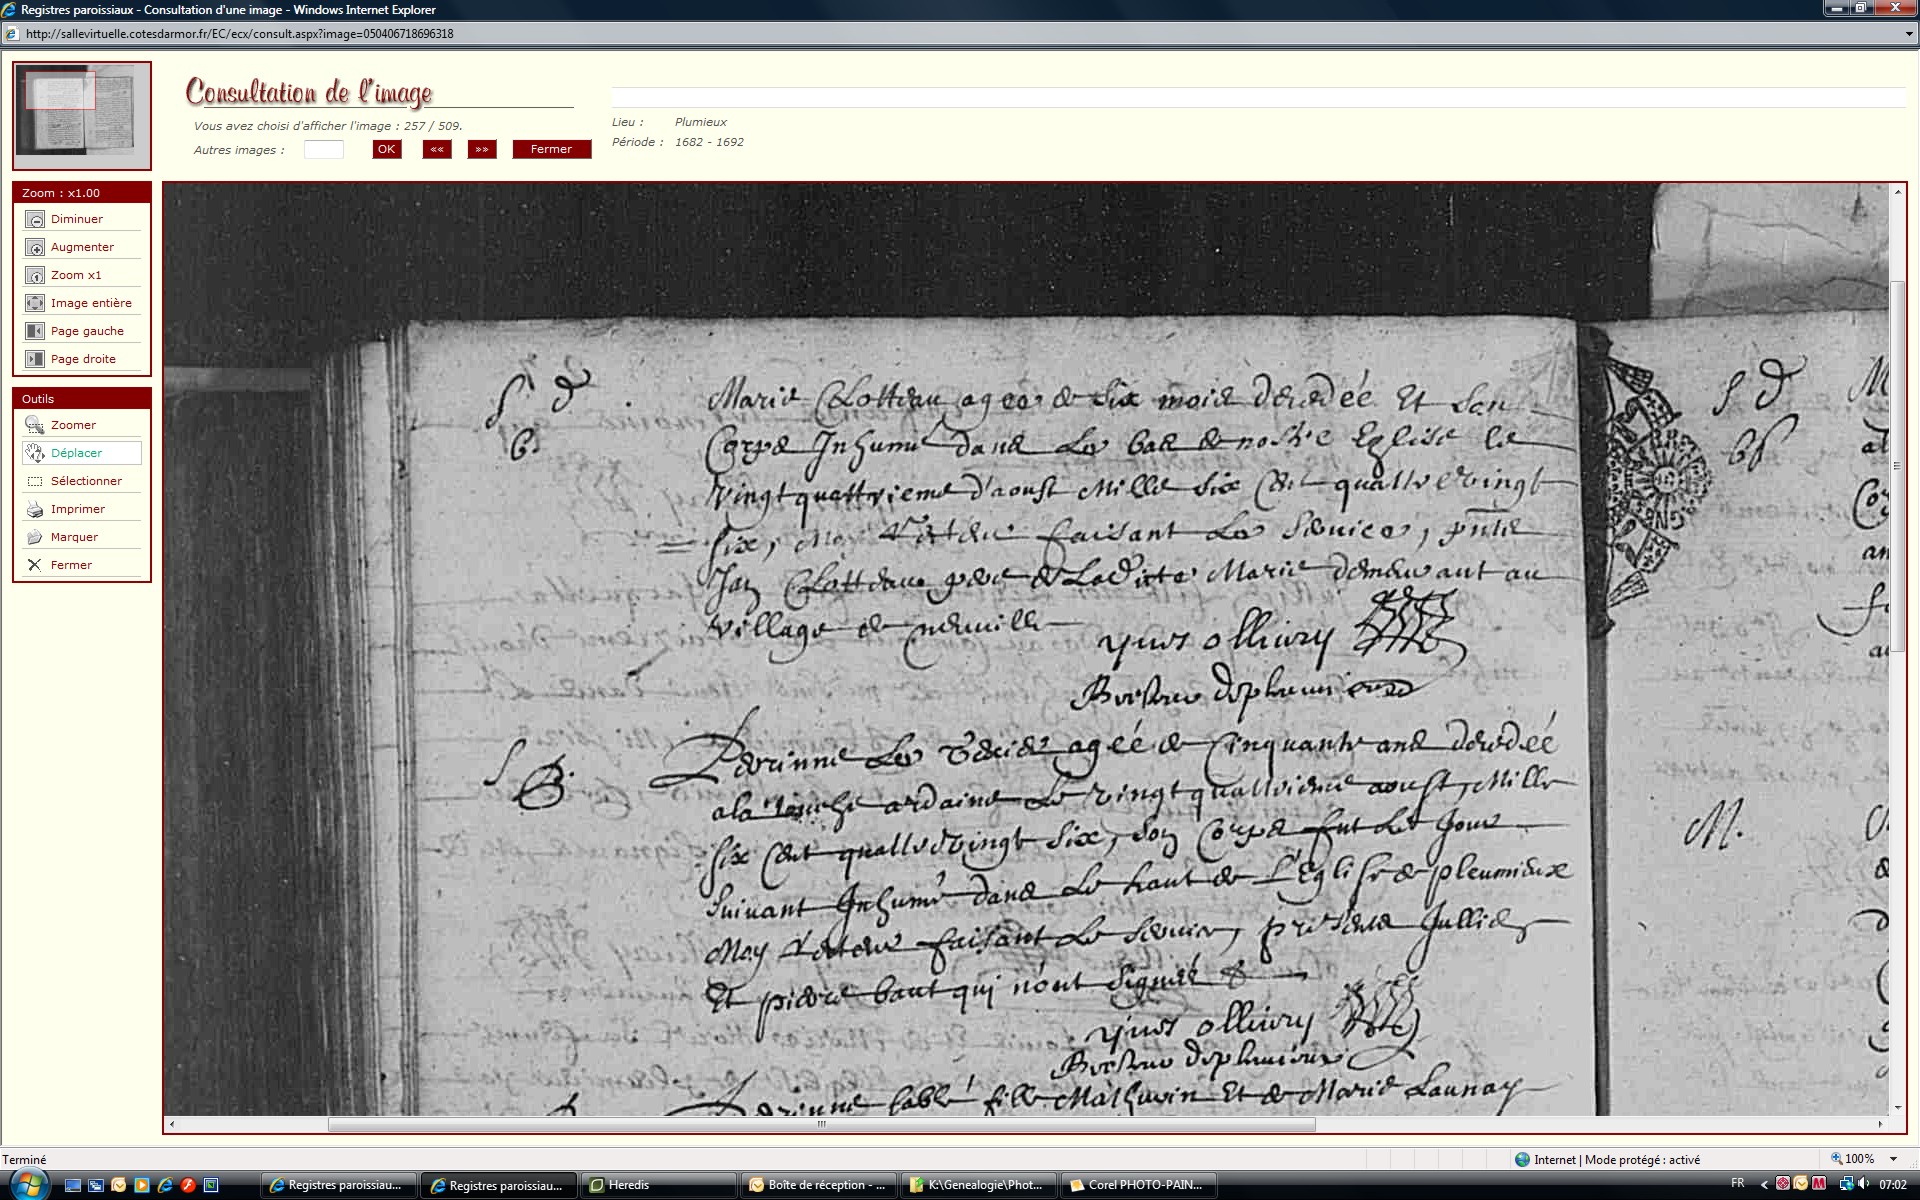 Registres paroissiaux - Consultation d'une image - Windows Internet Explorer
http://sallevirtuelle.cotesdarmor.fr/EC/ecx/consult.aspx?image=050406718696318
Consultation de l'image
Vous avez choisi d'afficher l'image : 257 / 509.
Autres images :
OK
««
»»
Fermer
Lieu : Plumieux
Période : 1682 - 1692
Zoom : x1.00
Diminuer
Augmenter
Zoom x1
Image entière
Page gauche
Page droite
Outils
Zoomer
Déplacer
Sélectionner
Imprimer
Marquer
Fermer
S d
b.
Marie agee de six mois decedée Et son
Corps Inhumé dans Le bas de nostre Eglise le
vingt quattrieme d'aoust Mille six Cent quattre vingt
six, Moy Recteur faisant Le service,
Jan pere de Laditte Marie demeurant au
village de
yves ollivry
Recteur de pleumieux
S
B.
Perinne Le agéé de Cinquante ans decedéé
a la Touche ardaine Le vingt quattrieme aoust, Mille
six Cent quattre vingt six, son Corps fut Le Jour
suivant Inhumé dans Le haut de L'Eglise de pleumieux
Moy Recteur faisant Le service, presents Jullien
Et pierre baut qui n'ont signéé &
yves ollivry
Recteur de pleumieux
Perinne labbé fille Mathurin Et de Marie Launay
S d
M.
Terminé
Internet | Mode protégé : activé
100%
Registres paroissiau...
Registres paroissiau...
Heredis
Boîte de réception - ...
K:\Genealogie\Phot...
Corel PHOTO-PAIN...
FR
07:02